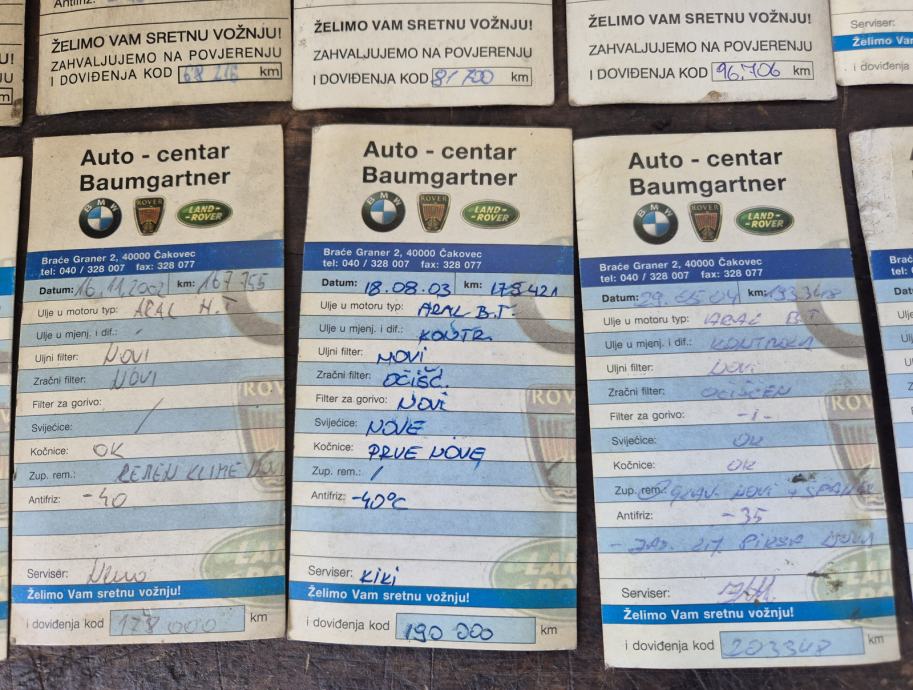 ŽELIMO VAM SRETNU VOŽNJU!
ZAHVALJUJEMO NA POVJERENJU
I DOVIĐENJA KOD km
ŽELIMO VAM SRETNU VOŽNJU!
ZAHVALJUJEMO NA POVJERENJU
I DOVIĐENJA KOD 81700 km
ŽELIMO VAM SRETNU VOŽNJU!
ZAHVALJUJEMO NA POVJERENJU
I DOVIĐENJA KOD 96.706 km
Serviser:
Želimo Vam
i doviđenja
Auto - centar
Baumgartner
BMW ROVER LAND-ROVER
Braće Graner 2, 40000 Čakovec
tel: 040 / 328 007 fax: 328 077
Datum: 16.11.2002 km: 167 755
Ulje u motoru tip: ARAL H.T
Ulje u mjenj. i dif.: /
Uljni filter: NOVI
Zračni filter: NOVI
Filter za gorivo:
Svijećice: /
Kočnice: OK
Zup. rem.: REMEN KLIME
Antifriz: -40
Serviser:
Želimo Vam sretnu vožnju!
i doviđenja kod 178 000 km
Auto - centar
Baumgartner
BMW ROVER LAND-ROVER
Braće Graner 2, 40000 Čakovec
tel: 040 / 328 007 fax: 328 077
Datum: 18.08.03 km: 178 421
Ulje u motoru tip: ARAL B.T.
Ulje u mjenj. i dif.: KONTR.
Uljni filter: NOVI
Zračni filter: OČIŠĆ.
Filter za gorivo: NOVI
Svijećice: NOVE
Kočnice: PRVE NOVE
Zup. rem.: /
Antifriz: -40°C
Serviser: KIKI
Želimo Vam sretnu vožnju!
i doviđenja kod 190 000 km
Auto - centar
Baumgartner
BMW ROVER LAND-ROVER
Braće Graner 2, 40000 Čakovec
tel: 040 / 328 007 fax: 328 077
Datum: km:
Ulje u motoru tip: ARAL B.T
Ulje u mjenj. i dif.: KONTROLA
Uljni filter: NOVI
Zračni filter: OČIŠĆEN
Filter za gorivo: -/-
Svijećice: OK
Kočnice: OK
Zup. rem.: NOVI
Antifriz: -35
Serviser:
Želimo Vam sretnu vožnju!
i doviđenja kod 203348 km